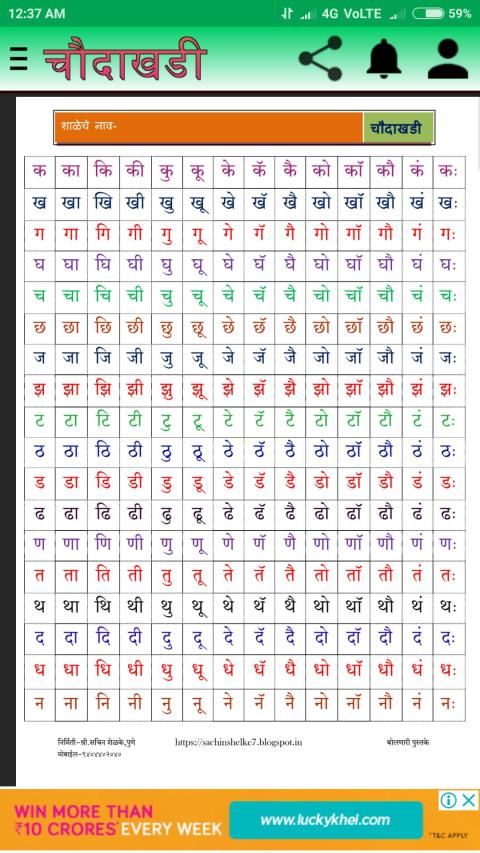 12:37 AM 4G VoLTE 59%
चौदाखडी
शाळेचे नाव- चौदाखडी
क का कि की कु कू के कॅ कै को कॉ कौ कं कः
ख खा खि खी खु खू खे खॅ खै खो खॉ खौ खं खः
ग गा गि गी गु गू गे गॅ गै गो गॉ गौ गं गः
घ घा घि घी घु घू घे घॅ घै घो घॉ घौ घं घः
च चा चि ची चु चू चे चॅ चै चो चॉ चौ चं चः
छ छा छि छी छु छू छे छॅ छै छो छॉ छौ छं छः
ज जा जि जी जु जू जे जॅ जै जो जॉ जौ जं जः
झ झा झि झी झु झू झे झॅ झै झो झॉ झौ झं झः
ट टा टि टी टु टू टे टॅ टै टो टॉ टौ टं टः
ठ ठा ठि ठी ठु ठू ठे ठॅ ठै ठो ठॉ ठौ ठं ठः
ड डा डि डी डु डू डे डॅ डै डो डॉ डौ डं डः
ढ ढा ढि ढी ढु ढू ढे ढॅ ढै ढो ढॉ ढौ ढं ढः
ण णा णि णी णु णू णे णॅ णै णो णॉ णौ णं णः
त ता ति ती तु तू ते तॅ तै तो तॉ तौ तं तः
थ था थि थी थु थू थे थॅ थै थो थॉ थौ थं थः
द दा दि दी दु दू दे दॅ दै दो दॉ दौ दं दः
ध धा धि धी धु धू धे धॅ धै धो धॉ धौ धं धः
न ना नि नी नु नू ने नॅ नै नो नॉ नौ नं नः
निर्मिती-श्री.सचिन शेळके,पुणे https://sachinshelke7.blogspot.in बोलणारी पुस्तके
मोबाईल-९४०४४०२०४०
WIN MORE THAN
₹10 CRORES* EVERY WEEK www.luckykhel.com *T&C APPLY